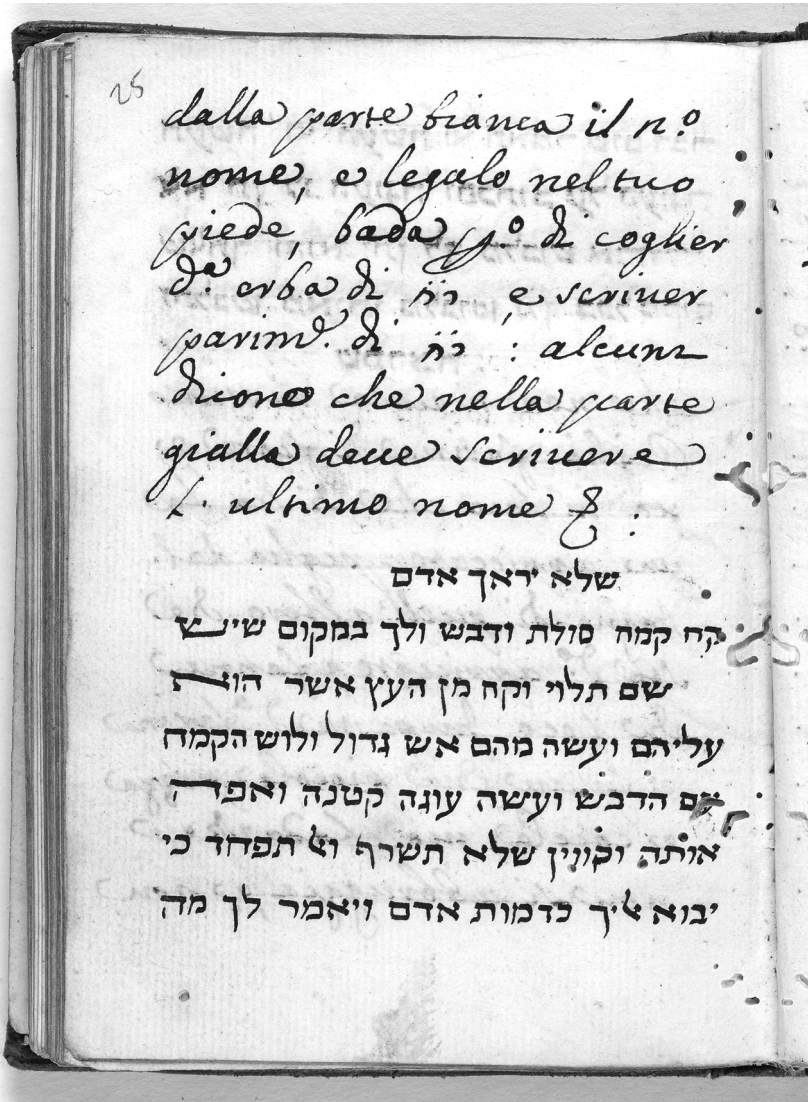 25
dalla parte bianca il n.º
nome, e legalo nel tuo
piede, bada p.º di coglier
d.ª erba di יוֹם e scriver
parim.ᵉ di : alcuni
dicono che nella parte
gialla deue scriuere
l'ultimo nome
שלא יראך אדם
קח קמח סולת ודבש ולך במקום שיש
שם תלוי וקח מן העץ אשר הוא
עליהם ועשה מהם אש גדול ולוש הקמח
עם הדבש ועשה עוגה קטנה ואפה
אותה וכווין שלא תשרף ואל תפחד כי
יבוא אליך כדמות אדם ויאמר לך מה